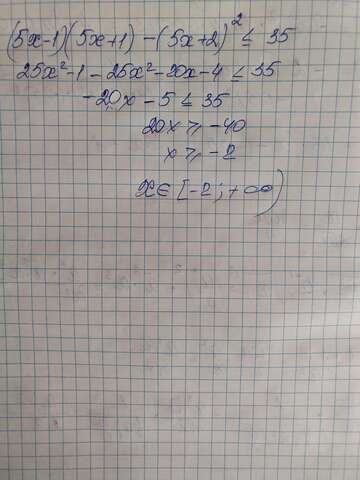 (5x-1)(5x+1) - (5x+2)² ≤ 35
25x² - 1 - 25x² - 20x - 4 ≤ 35
-20x - 5 ≤ 35
20x ≥ -40
x ≥ -2
x ∈ [-2; +∞)